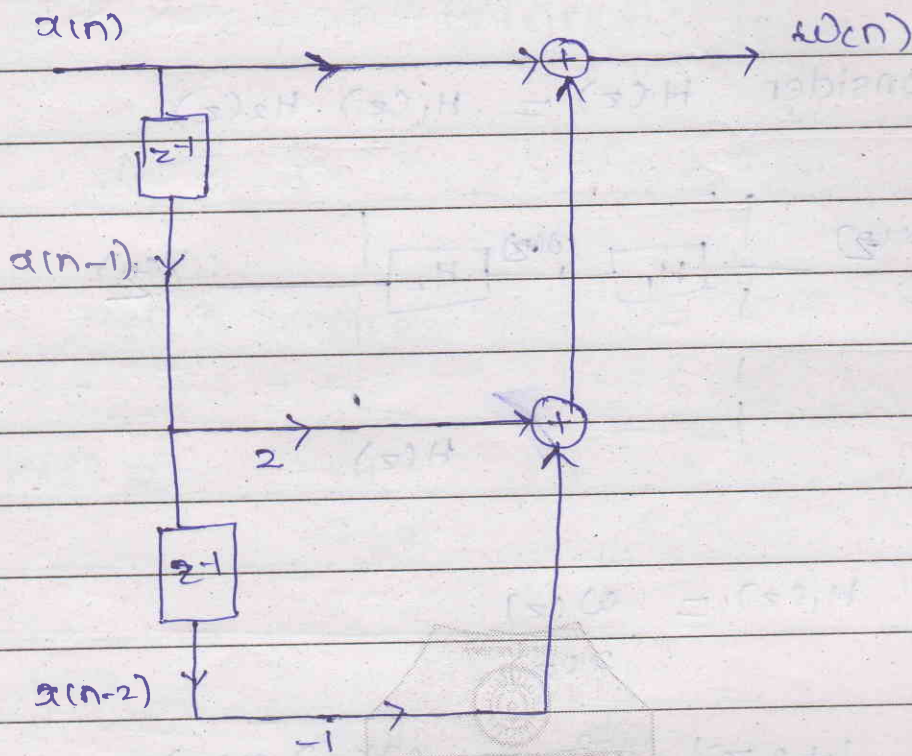 x(n) w(n)
z-1
x(n-1)
2
z-1
x(n-2)
-1